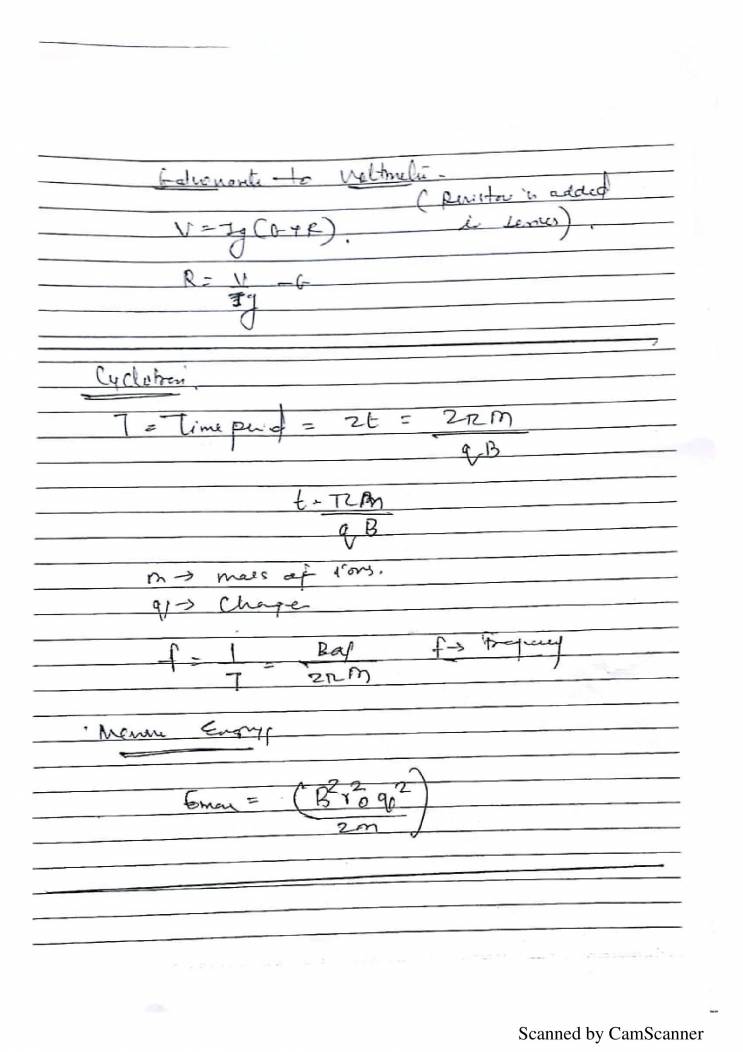 Galvanometer to Voltmeter -
(Resistor is added
in series).
V = Ig(G+R).
R = V/Ig - G
Cyclotron
T = Time period = 2t = 2πm/qB
t = πm/qB
m → mass of ions.
q → Charge
f = 1/T = Bq/2πm f → Frequency
Energy
Emax = (B²r₀²q²/2m)
Scanned by CamScanner